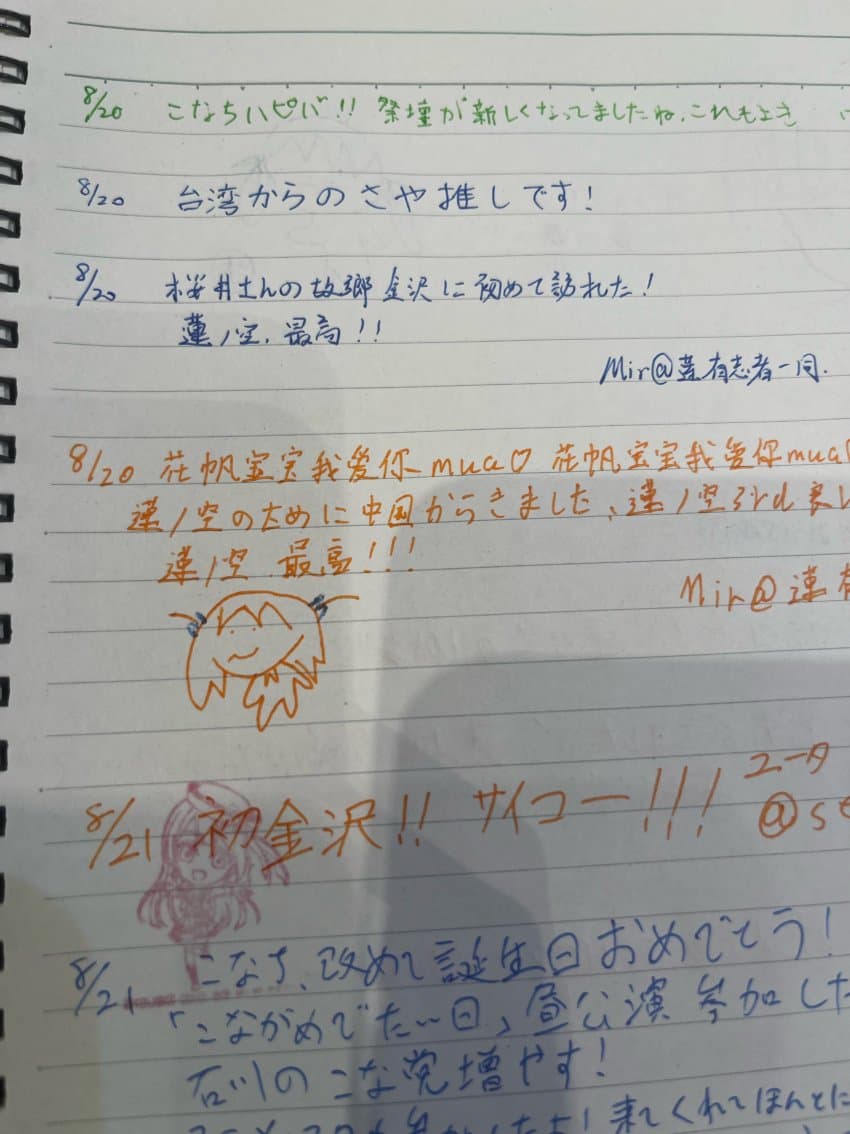 8/20 こなちハピバ!! 祭壇が新しくなってましたね、これもよき
8/20 台湾からの さや推しです!
8/20 桜井さんの故郷金沢に初めて訪れた!
蓮ノ空、最高!!
Mir@蓮有志者一同.
8/20 花帆宝宝我爱你mua♡ 花帆宝宝我爱你mua
蓮ノ空のために中国からきました、蓮ノ空3rd良
蓮ノ空 最高!!!
Mir@蓮有
8/21 初金沢!! サイコー!!! ユータ
@se
8/21 こなち、改めて誕生日おめでとう!
「こながめでたい日」昼公演 参加した
石川のこな党増やす!
来てくれてほんとに